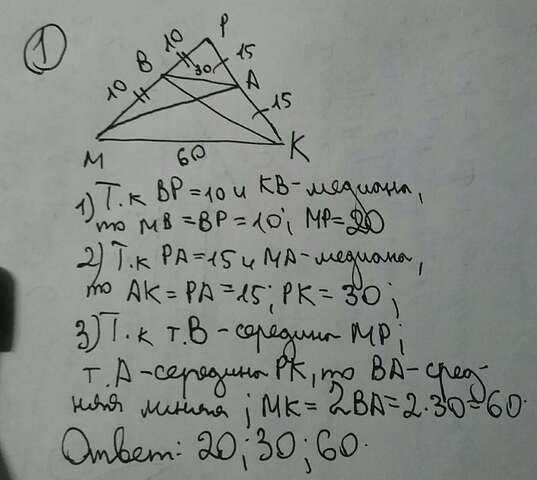 1
P
10
15
B
30
A
10
15
M
60
K
1) Т.к BP=10 и KB-медиана,
то MB=BP=10; MP=20
2) Т.к PA=15 и MA-медиана,
то AK=PA=15; PK=30;
3) Т.к т.B-середина MP;
т.A-середина PK, то BA-сред-
няя линия; MK=2BA=2·30=60.
Ответ: 20; 30; 60.